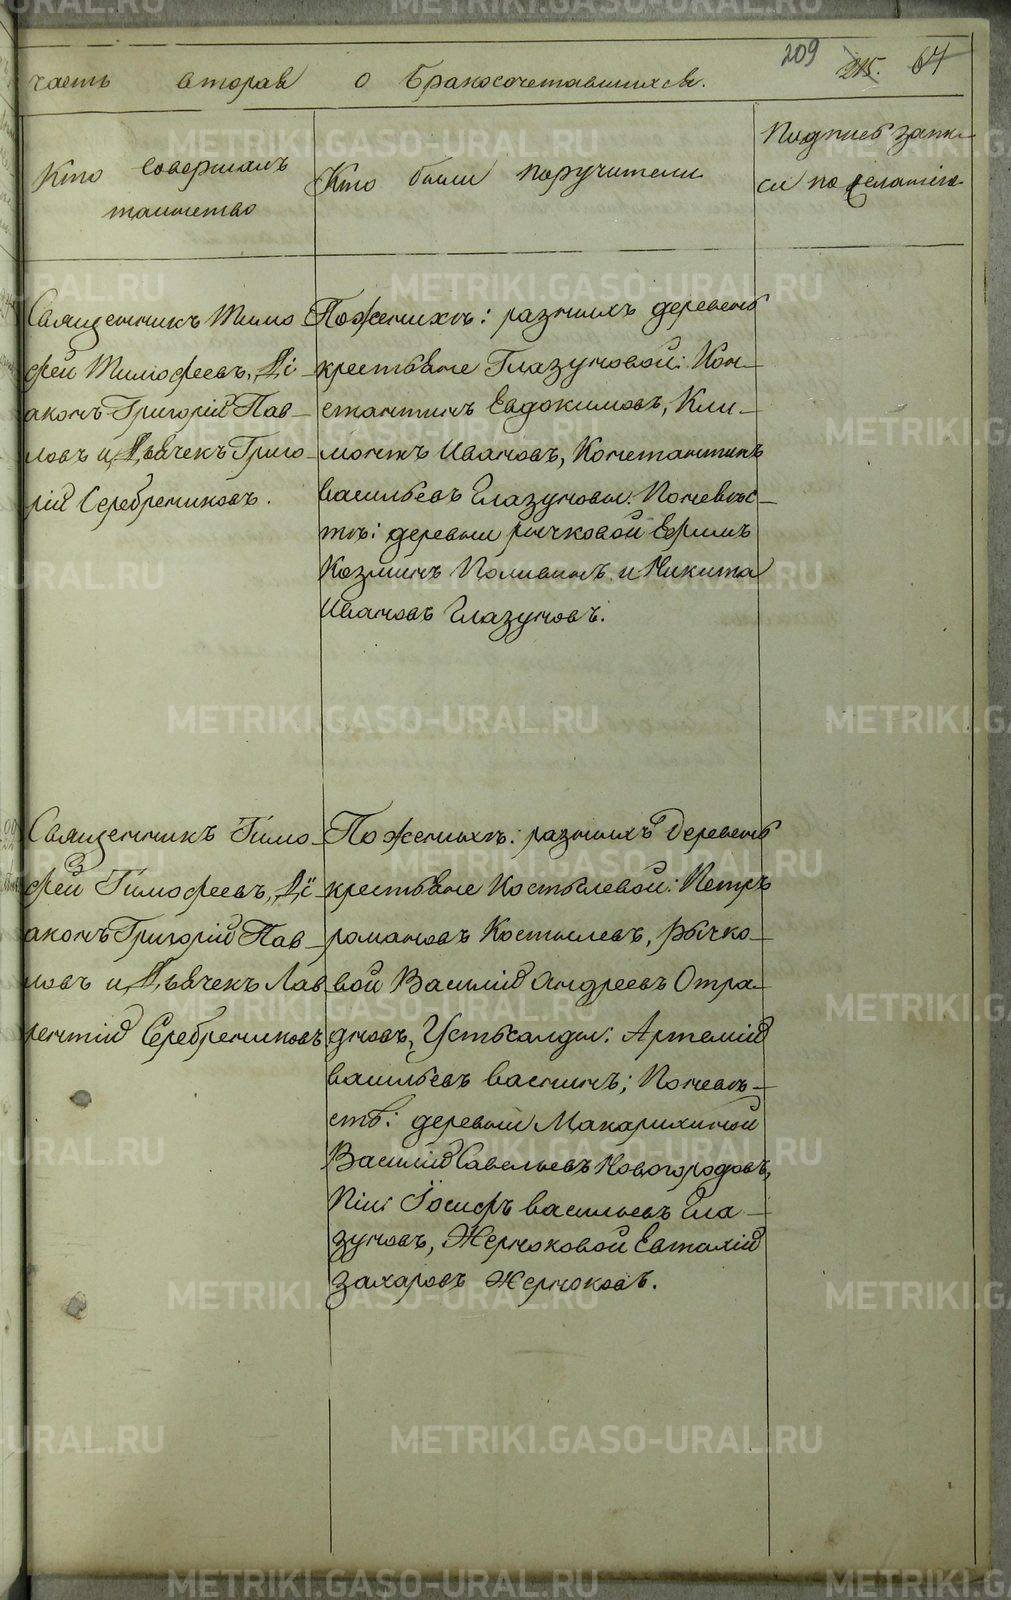 209 215. 64
часть вторая о бракосочетавшихся.
Кто совершалъ
таинство
Кто были поручители
Подпись запи-
си по желанію
Священникъ Тимо
фей Тимофеевъ, Ді-
аконъ Григорій Пав-
ловъ и Дьячекъ Григо-
рій Серебрениковъ.
Поженихѣ: разныхъ деревень
крестьяне Глазуновой: Кон-
стантинъ Евдокимовъ, Кли-
монтъ Ивановъ, Константинъ
васильевъ Глазуновы. Поневѣс-
тѣ: деревни рычковой Ефимъ
Козминъ Поливинъ и Никита
Ивановъ Глазуновъ.
Священникъ Тимо-
фей Тимофеевъ, Ді-
аконъ Григорій Пав-
ловъ и Дьячекъ Лав
рентій Серебрениковъ
Поженихѣ: разныхъ деревень
крестьяне Костылевой: Петръ
романовъ Костылевъ, Рычко-
вой Василій Андреевъ Отра-
дновъ, Устьсалды: Артемій
васильевъ васнинъ; Поневѣ-
стѣ: деревни Макарихиной
Василій Савельевъ Новогородовъ,
Іосифъ васильевъ Гла-
зуновъ, Жерноковой Евталій
Захаровъ Жерноковъ.
METRIKI.GASO-URAL.RU